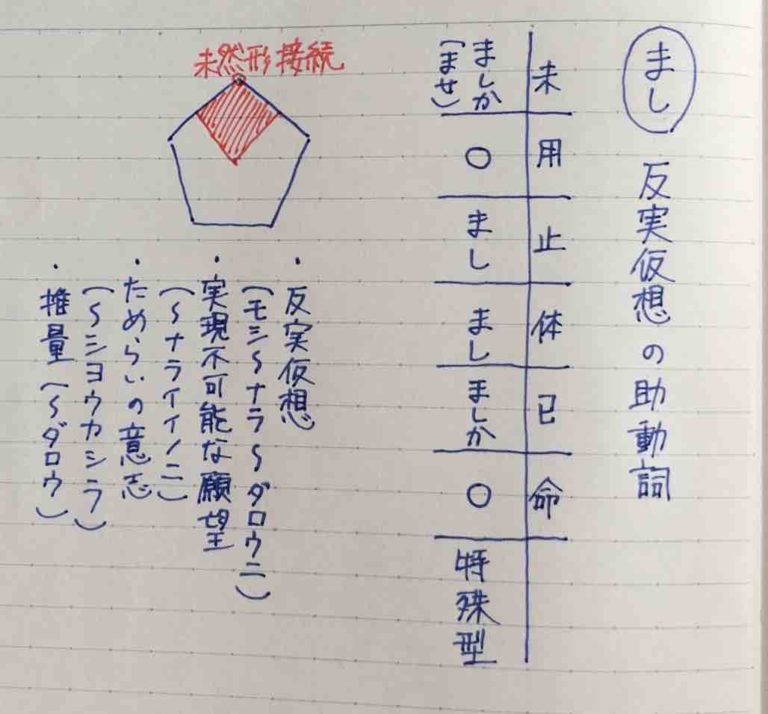 まし 反実仮想の助動詞
未 用 止 体 已 命
ましか
(ませ)
○
まし
まし
ましか
○
特殊型
未然形接続
・反実仮想
(モシ〜ナラ〜ダロウニ)
・実現不可能な願望
(〜ナライイノニ)
・ためらいの意志
(〜ショウカシラ)
・推量(〜ダロウ)